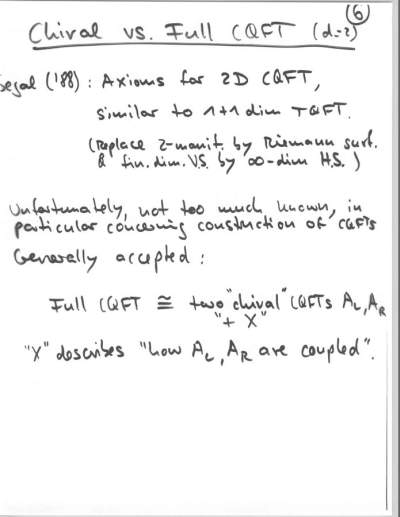 6
Chiral vs. Full CQFT (d=2)
Segal ('88) : Axioms for 2D CQFT,
similar to 1+1 dim TQFT.
(Replace 2-manif. by Riemann surf.
& fin. dim. V.S. by ∞-dim H.S.)
Unfortunately, not too much known, in
particular concerning construction of CQFTs
Generally accepted :
Full CQFT ≅ two "chiral" CQFTs A_L, A_R
"+ X"
"X" describes "how A_L, A_R are coupled".